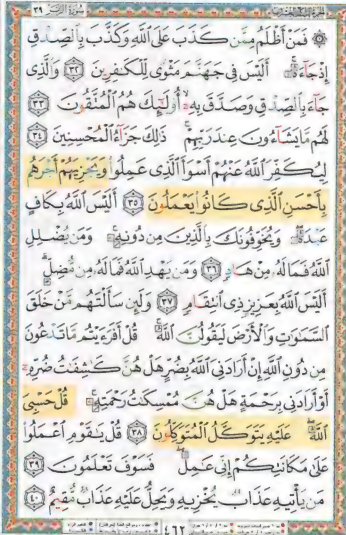 سُورَةُ الزُّمَرِ ٣٩
۞ فَمَنْ أَظْلَمُ مِمَّن كَذَبَ عَلَى ٱللَّهِ وَكَذَّبَ بِٱلصِّدْقِ
إِذْ جَآءَهُۥٓ ۚ أَلَيْسَ فِى جَهَنَّمَ مَثْوًى لِّلْكَٰفِرِينَ ٣٢ وَٱلَّذِى
جَآءَ بِٱلصِّدْقِ وَصَدَّقَ بِهِۦٓ ۙ أُو۟لَٰٓئِكَ هُمُ ٱلْمُتَّقُونَ ٣٣
لَهُم مَّا يَشَآءُونَ عِندَ رَبِّهِمْ ۚ ذَٰلِكَ جَزَآءُ ٱلْمُحْسِنِينَ ٣٤
لِيُكَفِّرَ ٱللَّهُ عَنْهُمْ أَسْوَأَ ٱلَّذِى عَمِلُوا۟ وَيَجْزِيَهُمْ أَجْرَهُم
بِأَحْسَنِ ٱلَّذِى كَانُوا۟ يَعْمَلُونَ ٣٥ أَلَيْسَ ٱللَّهُ بِكَافٍ
عَبْدَهُۥ ۖ وَيُخَوِّفُونَكَ بِٱلَّذِينَ مِن دُونِهِۦ ۚ وَمَن يُضْلِلِ
ٱللَّهُ فَمَا لَهُۥ مِنْ هَادٍ ٣٦ وَمَن يَهْدِ ٱللَّهُ فَمَا لَهُۥ مِن مُّضِلٍّ ۗ
أَلَيْسَ ٱللَّهُ بِعَزِيزٍ ذِى ٱنتِقَامٍ ٣٧ وَلَئِن سَأَلْتَهُم مَّنْ خَلَقَ
ٱلسَّمَٰوَٰتِ وَٱلْأَرْضَ لَيَقُولُنَّ ٱللَّهُ ۚ قُلْ أَفَرَءَيْتُم مَّا تَدْعُونَ
مِن دُونِ ٱللَّهِ إِنْ أَرَادَنِىَ ٱللَّهُ بِضُرٍّ هَلْ هُنَّ كَٰشِفَٰتُ ضُرِّهِۦٓ
أَوْ أَرَادَنِى بِرَحْمَةٍ هَلْ هُنَّ مُمْسِكَٰتُ رَحْمَتِهِۦ ۚ قُلْ حَسْبِىَ
ٱللَّهُ ۖ عَلَيْهِ يَتَوَكَّلُ ٱلْمُتَوَكِّلُونَ ٣٨ قُلْ يَٰقَوْمِ ٱعْمَلُوا۟
عَلَىٰ مَكَانَتِكُمْ إِنِّى عَٰمِلٌ ۖ فَسَوْفَ تَعْلَمُونَ ٣٩
مَن يَأْتِيهِ عَذَابٌ يُخْزِيهِ وَيَحِلُّ عَلَيْهِ عَذَابٌ مُّقِيمٌ ٤٠
٤٦٢